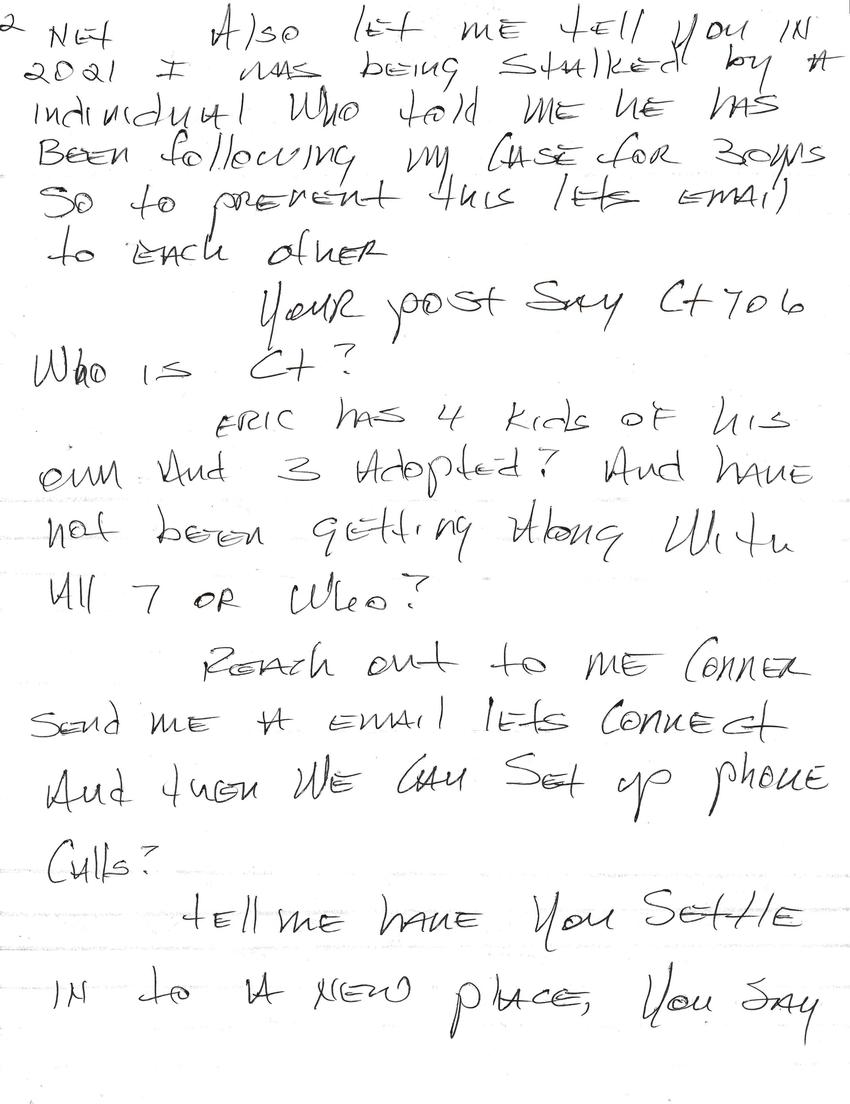 2 NET Also let ME tell you IN
2021 I was being Stalked by A
individual Who told ME HE HAS
BEEN following my CASE for 30yrs
So to prevent this lets EMAil
to EACh other
Your post Say Ct 706
Who is Ct?
ERIC has 4 kids of his
own And 3 Adopted? And have
not been getting Along With
All 7 OR Who?
Reach out to ME Conner
Send ME A EMAil lets Connect
And then WE CAN Set up phone
Calls?
tell ME have You Settle
IN to A NEW place, You SAY